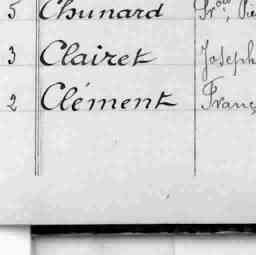 5 Chunard
3 Clairet Joseph
2 Clément Franç